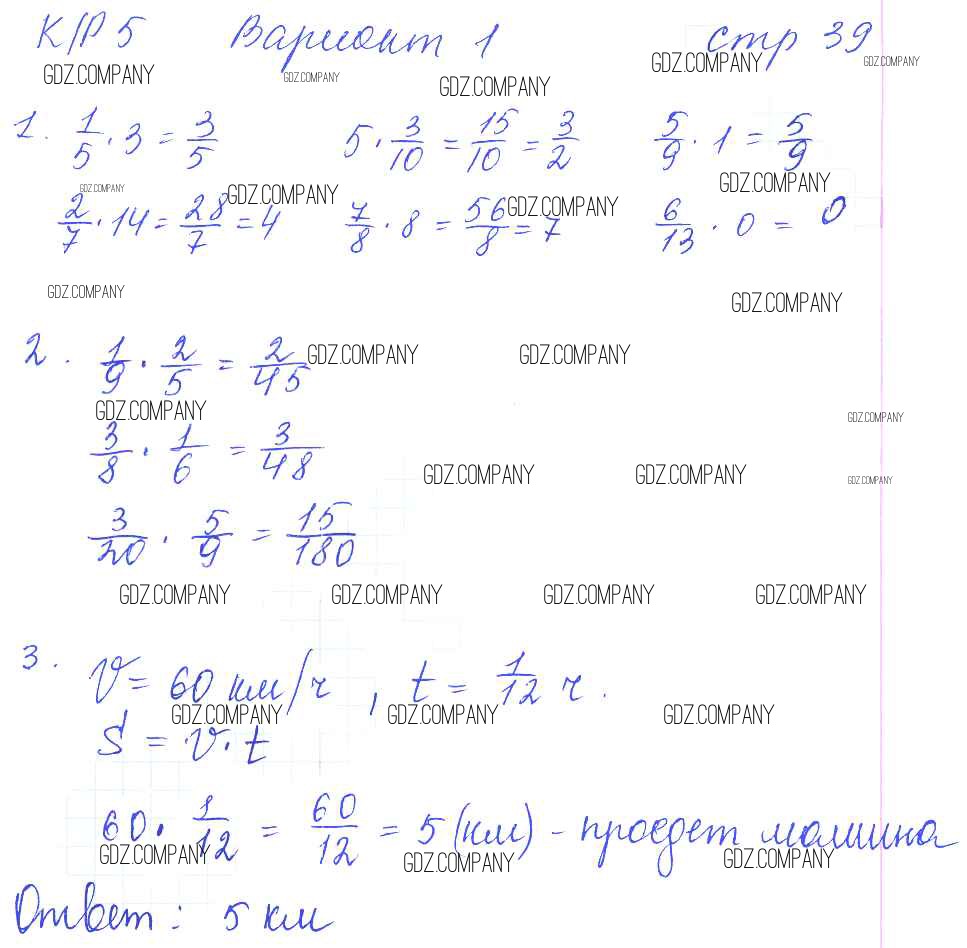 К/Р 5 Вариант 1 стр 39
GDZ.COMPANY GDZ.COMPANY GDZ.COMPANY GDZ.COMPANY GDZ.COMPANY
1. 1/5 · 3 = 3/5 5 · 3/10 = 15/10 = 3/2 5/9 · 1 = 5/9
GDZ.COMPANY GDZ.COMPANY GDZ.COMPANY GDZ.COMPANY
2/7 · 14 = 28/7 = 4 7/8 · 8 = 56/8 = 7 6/13 · 0 = 0
GDZ.COMPANY GDZ.COMPANY
2. 1/9 · 2/5 = 2/45
GDZ.COMPANY GDZ.COMPANY
GDZ.COMPANY GDZ.COMPANY
3/8 · 1/6 = 3/48
GDZ.COMPANY GDZ.COMPANY GDZ.COMPANY
3/20 · 5/9 = 15/180
GDZ.COMPANY GDZ.COMPANY GDZ.COMPANY GDZ.COMPANY
3. V = 60 км/ч, t = 1/12 ч.
GDZ.COMPANY GDZ.COMPANY GDZ.COMPANY
S = v · t
60 · 1/12 = 60/12 = 5 (км) - проедет машина
GDZ.COMPANY GDZ.COMPANY GDZ.COMPANY
Ответ: 5 км